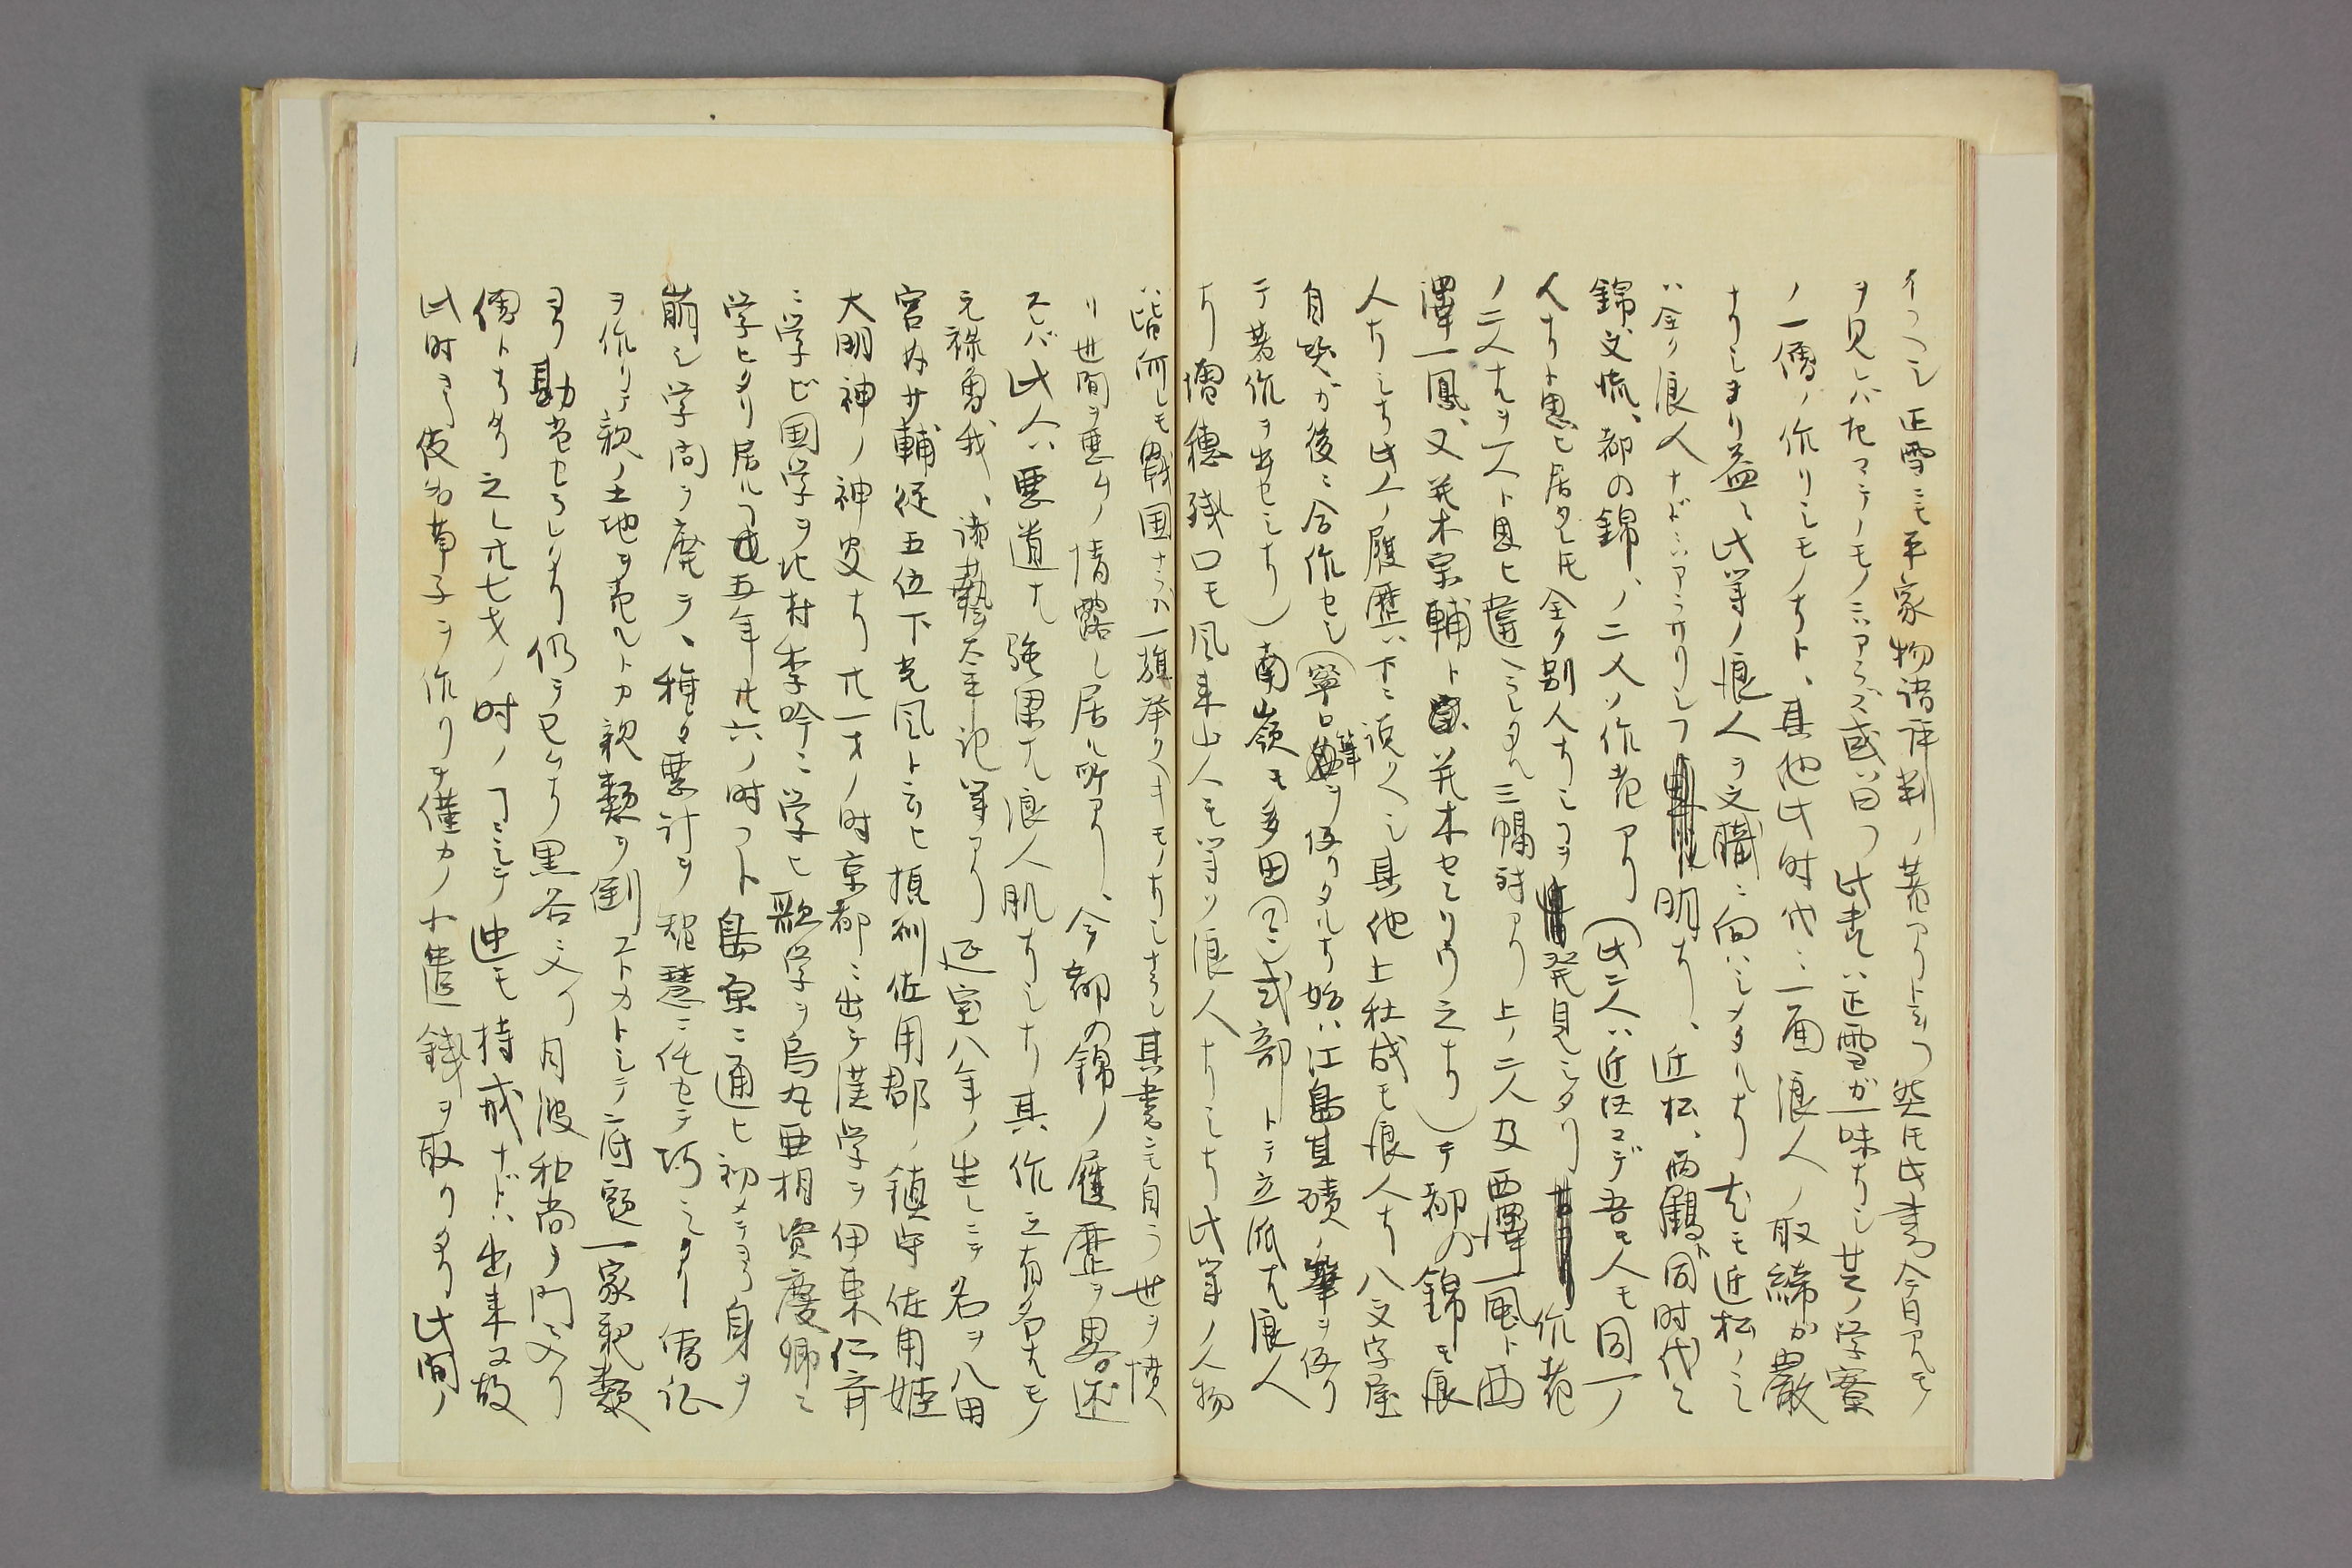 イフヘシ正雪ニモ平家物語評判ノ著アリト云フ然レトモ此書今日アルモノ
ヲ見レバ左マテノモノニハアラズ或ハ曰フ此書ハ正雪ガ一味ナリシ芝ノ学寮
ノ一僧ノ作リシモノナリト、其他此時代ハ一面浪人ノ取締カ厳
ナリシヨリ益々此等ノ浪人ヲ文職ニ向ハシメタルナリ尤モ近松ノミ
ハ全ク浪人ナドニハアラサリシコト明ナリ、近松、西鶴ト同時代ニ
錦文流、都の錦、ノ二人ノ作者アリ(此二人ハ近ママデ吾モ人モ同一ノ
人ナリト思ヒ居タレトモ全ク別人ナリシコトヲ発見シタリ 作者
ノ二人ナルヲ一人ト思ヒ違ヘラレタル三幅対アリ上ノ二人及西澤一風ト西
澤一鳳、又並木宗輔ト並木セんりう之ナリ)テ都の錦モ浪
人ナリシナリ此人ノ履歴ハ下ニ説クヘシ其他上杜成モ浪人ナリ八文字屋
自笑ガ後ニ合作セシ(寧ロ筆ヲ偽リタルナリ始ハ江島其磧ノ筆ヲ偽リ
テ著作ヲ出セシナリ)南嶺モ多田 式部トテ立派ナ浪人
ナリ増穂残口モ風来山人モ皆ナ浪人ナリシナリ此等ノ人物
ハ皆何レモ戦国ナラバ一旗挙クヘキモノナリシナラン其書ニモ自ラ世ヲ憤
リ世間ヲ悪ムノ情露レ居ル所アリ、今都の錦ノ履歴ヲ畧述
スレバ此人ハ悪道ナ強果ナ浪人肌ナリシナリ其作ニ有名ナルモノ
元禄曽我、諸藝太平記等アリ延宝八年ノ生レニテ名ヲ八田
宮内少輔従五位下光風ト云ヒ摂州佐用郡ノ鎮守佐用姫
大明神ノ神主ナリ廿一才ノ時京都ニ出テ漢学ヲ伊東仁斉
ニ学ビ国学ヲ北村季吟ニ学ヒ歌学ヲ烏丸亜相資慶卿ニ
学ヒタリ居ルコト五年廿六ノ時フト島原ニ通ヒ初メテヨリ身ヲ
崩シ学問ヲ廃ラ、種々悪計ヲ智慧ニ任セテ巧ミタリ偽証
ヲ作リテ親ノ土地ヲ売ルトカ親類ヲ倒ストカトシテ一家親類
ヨリ勘当セラレタリ仍テ已ムナク黒谷ニ入リ月波和尚ノ門ニ入リ
僧トナリタリ之レ廿七才ノ時ノコトニシテ迚モ持戒ナドハ出来ヌ故
此時ヨリ役者草子ヲ作リテ僅カノ小遣銭ヲ取リタリ此間ノ